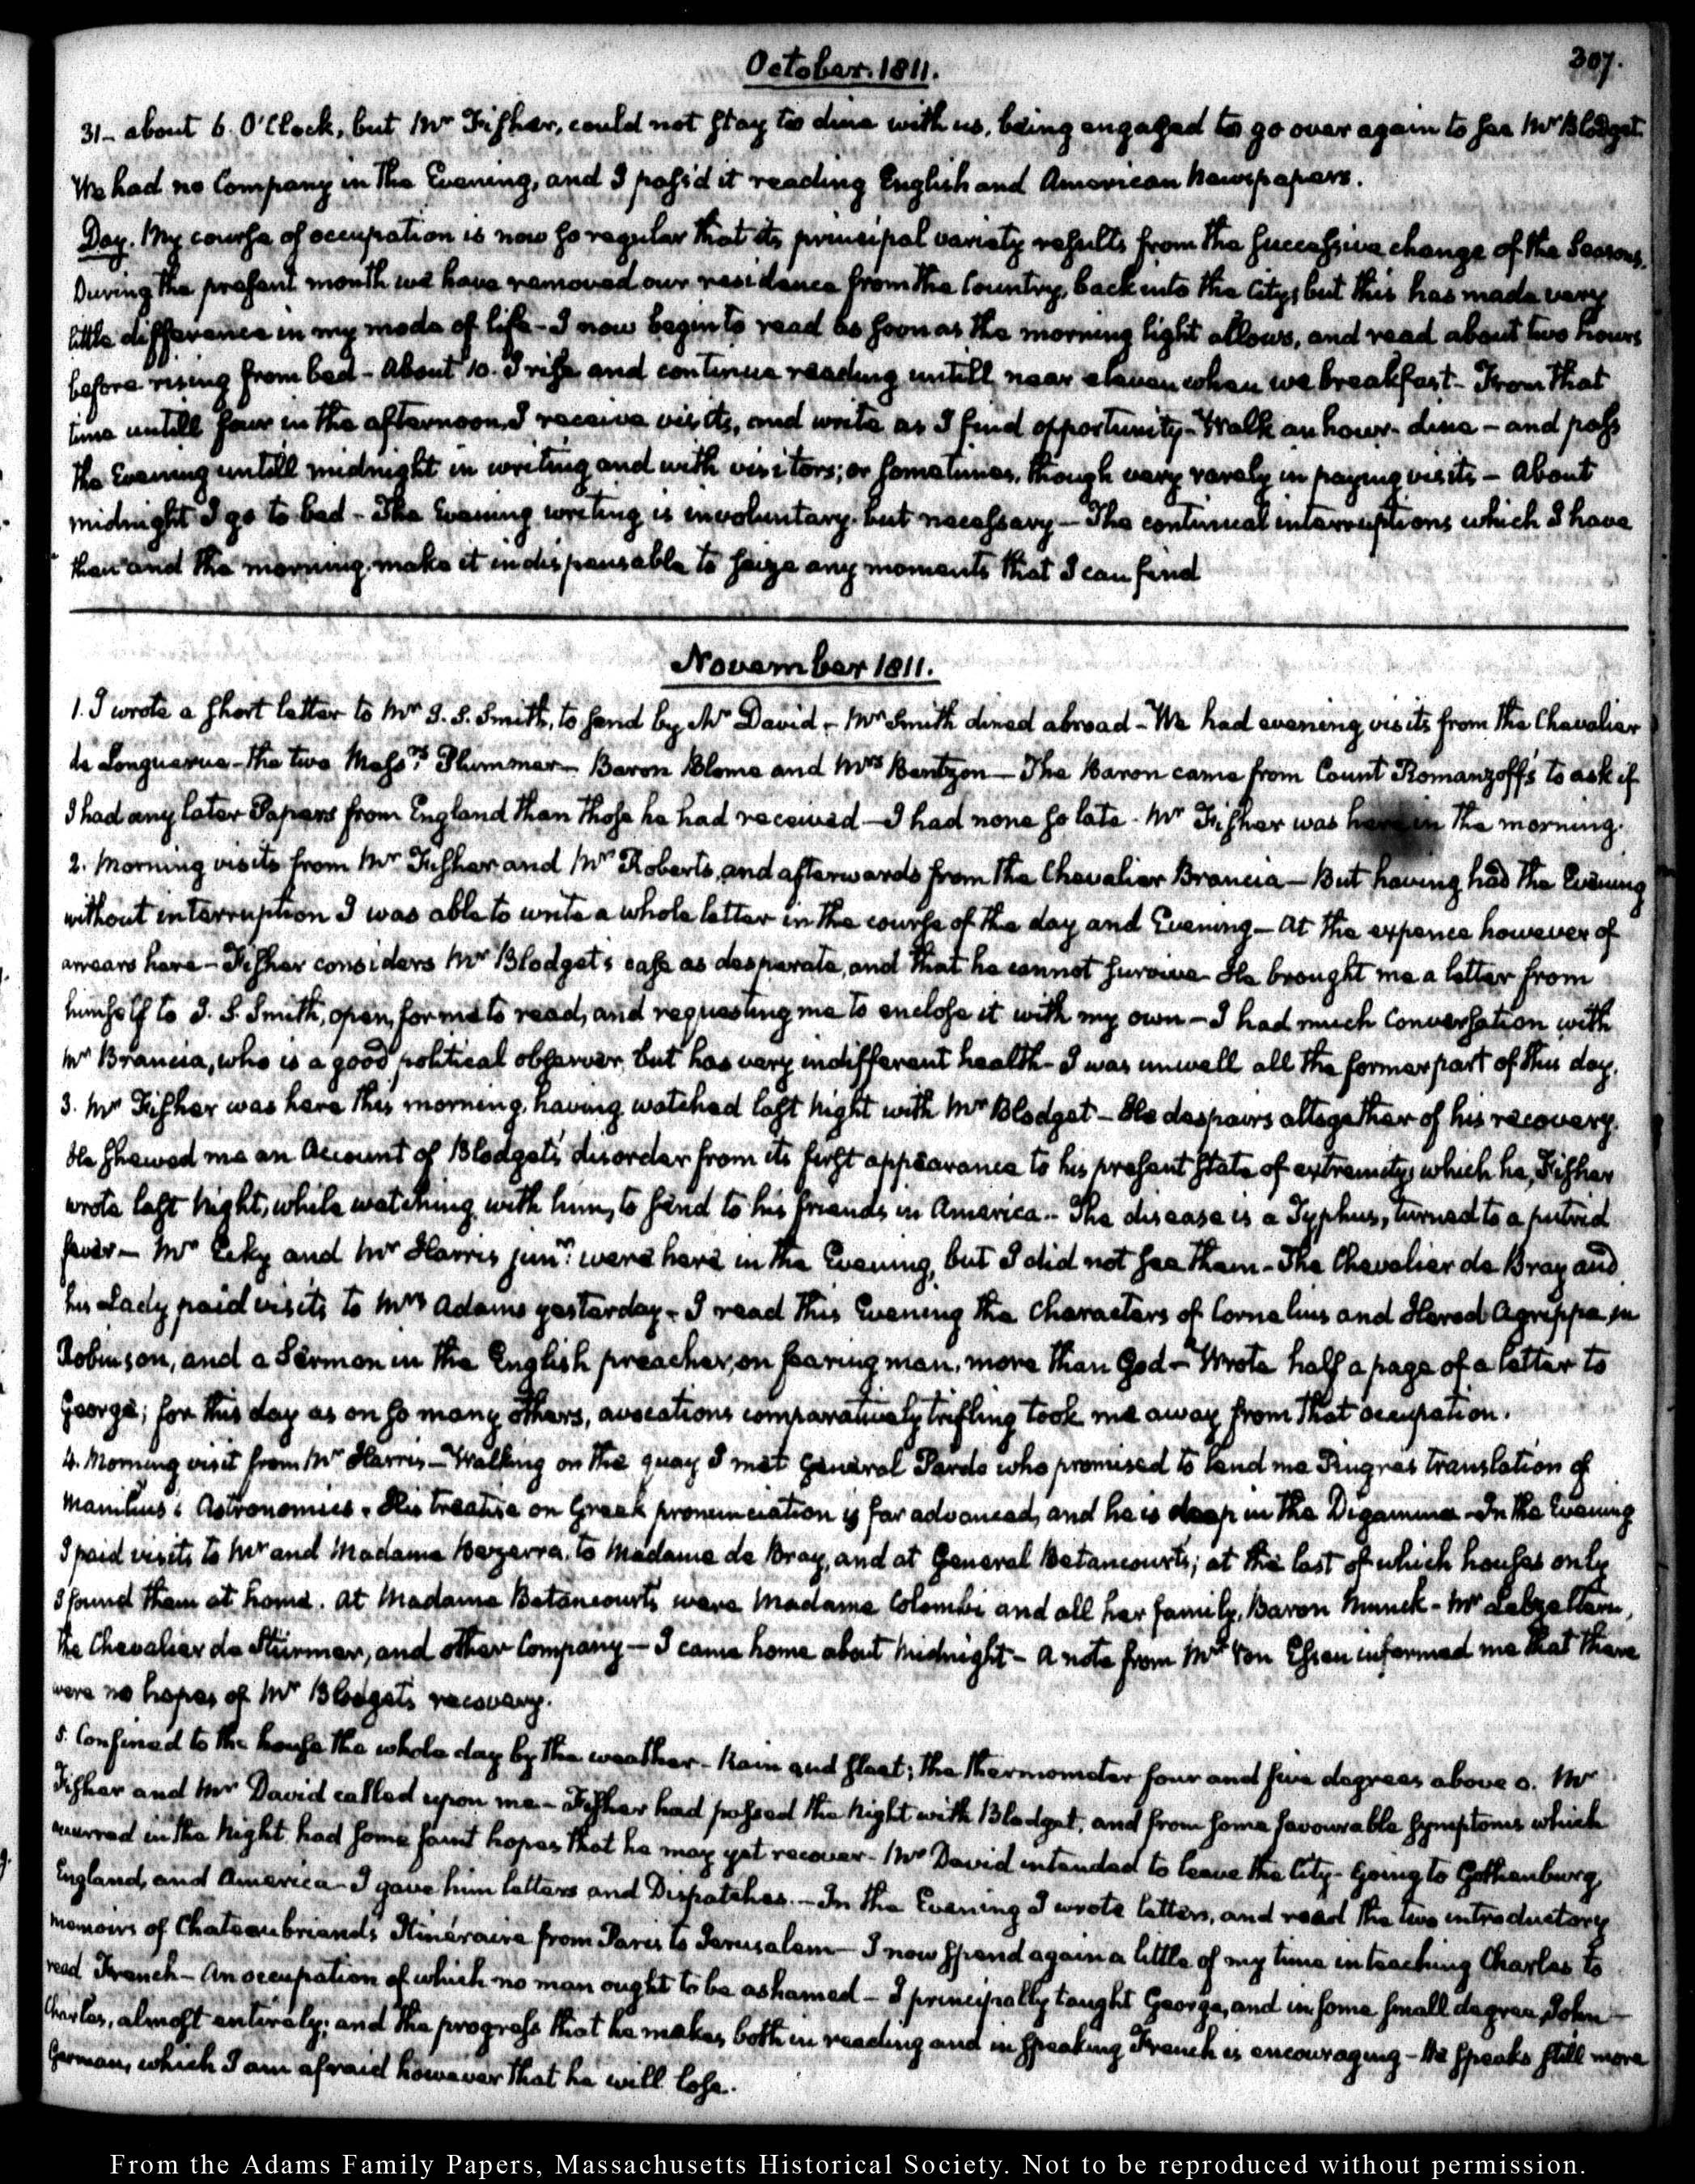 October. 1811.
307.
31 - about 6. O'Clock, but Mr Fisher, could not stay to dine with us, being engaged to go over again to see Mr Blodget.
We had no Company in the Evening, and I pass'd it reading English and American Newspapers.
Day. My course of occupation is now so regular that its principal variety results from the successive change of the Seasons.
During the present month we have removed our residence from the Country, back into the City, but this has made very
little difference in my mode of life - I now begin to read as soon as the morning light allows, and read about two hours
before rising from bed - About 10. I rise and continue reading untill near eleven when we breakfast - From that
time untill four in the afternoon, I receive visits, and write as I find opportunity - Walk an hour - dine - and pass
the Evening untill midnight in writing and with visitors; or sometimes, though very rarely in paying visits - About
midnight I go to bed - The Evening writing is involuntary, but necessary - The continual interruptions which I have
then and the morning, make it indispensable to seize any moments that I can find
November 1811.
1. I wrote a short letter to Mr J. S. Smith, to send by Mr David - Mr Smith dined abroad - We had evening visits from the Chevalier
de Longuerue - the two Messrs. Plummer - Baron Blome and Mrs Bentzon - The Baron came from Count Romanzoff's to ask if
I had any later Papers from England than those he had received - I had none so late - Mr Fisher was here in the morning.
2. Morning visits from Mr Fisher and Mr Roberts, and afterwards from the Chevalier Brancia - But having had the Evening
without interruption I was able to write a whole letter in the course of the day and Evening - At the expence however of
arrears here - Fisher considers Mr Blodget's case as desperate, and that he cannot survive - He brought me a letter from
himself to J. S. Smith, open, for me to read, and requesting me to enclose it with my own - I had much Conversation with
Mr Brancia, who is a good political observer, but has very indifferent health - I was unwell all the former part of this day.
3. Mr Fisher was here this morning, having watched last Night with Mr Blodget - He despairs altogether of his recovery.
He shewed me an Account of Blodget's disorder from its first appearance to his present state of extremity, which he, Fisher
wrote last Night, while watching with him, to send to his friends in America - The disease is a Typhus, turned to a putrid
fever - Mr Leky and Mr Harris junr. were here in the Evening, but I did not see them - The Chevalier de Bray and
his Lady paid visits to Mrs Adams yesterday - I read this Evening the Characters of Cornelius and Herod Agrippa in
Robinson, and a Sermon in the English preacher, on fearing man, more than God - Wrote half a page of a letter to
George; for this day as on so many others, avocations comparatively trifling took me away from that occupation.
4. Morning visit from Mr Harris - Walking on the quay I met General Pardo who promised to lend me Pingrés translation of
Manilius's Astronomics. His treatise on Greek pronunciation is far advanced, and he is deep in the Digamma - In the Evening
I paid visits to Mr and Madame Bezerra, to Madame de Bray, and at General Betancourt's; at the last of which houses only
I found them at home. At Madame Betancourt's were Madame Colombi and all her family, Baron Munck - Mr Lebzeltern,
the Chevalier de Stürmer, and other Company - I came home about Midnight - A note from Mr Von Essen informed me that there
were no hopes of Mr Blodget's recovery.
5. Confined to the house the whole day by the weather - Rain and sleet; the thermometer four and five degrees above 0. Mr
Fisher and Mr David called upon me - Fisher had passed the Night with Blodget, and from some favourable symptoms which
occurred in the Night, had some faint hopes that he may yet recover - Mr David intended to leave the City - Going to Gothenburg,
England, and America - I gave him letters and Dispatches. - In the Evening I wrote letters, and read the two introductory
memoirs of Chateaubriand's Itinéraire from Paris to Jerusalem - I now spend again a little of my time in teaching Charles to
read French - An occupation of which no man ought to be ashamed - I principally taught George, and in some small degree, John -
Charles, almost entirely; and the progress that he makes both in reading and in speaking French is encouraging - He speaks still more
German, which I am afraid however that he will lose.
From the Adams Family Papers, Massachusetts Historical Society. Not to be reproduced without permission.